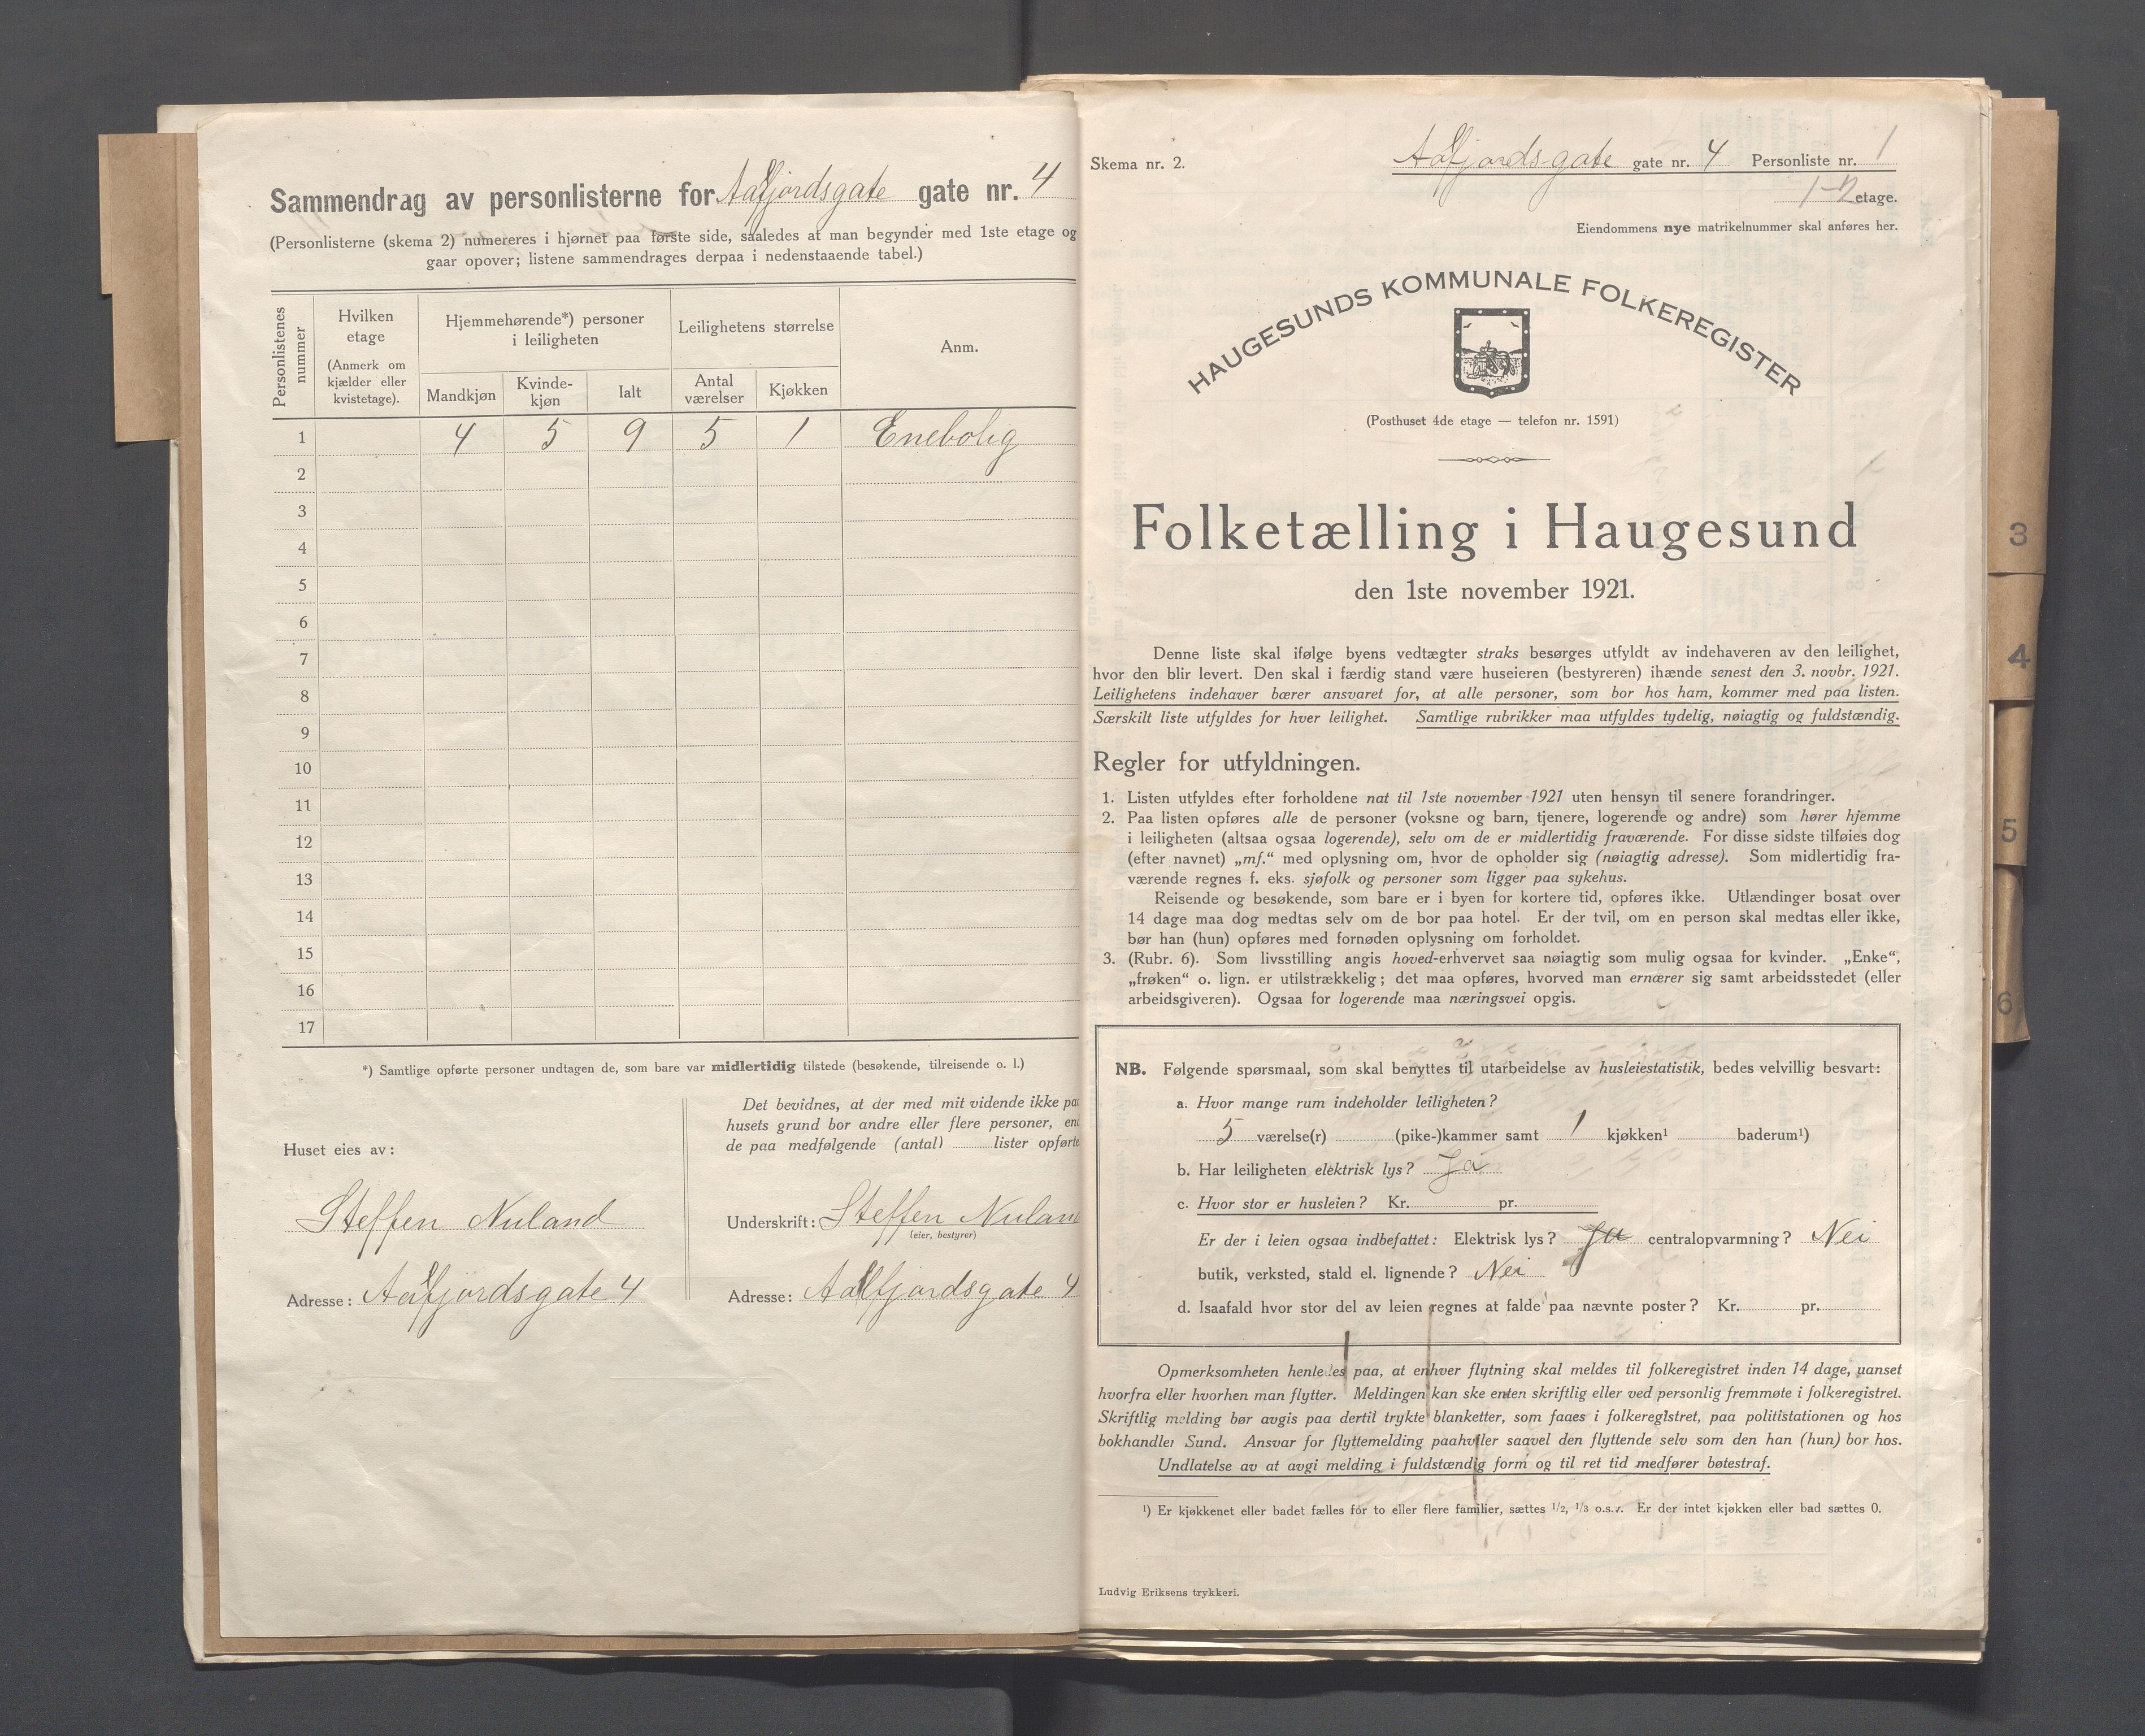 Sammendrag av personlisterne for Aalfjordsgate gate nr. 4
(Personlisterne (skema 2) numereres i hjørnet paa første side, saaledes at man begynder med 1ste etage og
gaar opover; listene sammendrages derpaa i nedenstaaende tabel.)
Personlistenes nummer
Hvilken etage
(Anmerk om kjælder eller kvistetage).
Hjemmehørende*) personer i leiligheten
Mandkjøn
Kvinde-kjøn
Ialt
Leilighetens størrelse
Antal værelser
Kjøkken
Anm.
1 4 5 9 5 1 Enebolig
2
3
4
5
6
7
8
9
10
11
12
13
14
15
16
17
*) Samtlige opførte personer undtagen de, som bare var midlertidig tilstede (besøkende, tilreisende o. l.)
Huset eies av:
Steffen Nuland
Adresse: Aalfjordsgate 4
Det bevidnes, at der med mit vidende ikke paa
husets grund bor andre eller flere personer, end
de paa medfølgende (antal) lister opførte
Underskrift: Steffen Nuland
(eier, bestyrer)
Adresse: Aalfjordsgate 4
Skema nr. 2.
Aalfjords-gate gate nr. 4 Personliste nr. 1
1-2 etage.
Eiendommens nye matrikelnummer skal anføres her.
HAUGESUNDS KOMMUNALE FOLKEREGISTER
(Posthuset 4de etage — telefon nr. 1591)
Folketælling i Haugesund
den 1ste november 1921.
Denne liste skal ifølge byens vedtægter straks besørges utfyldt av indehaveren av den leilighet,
hvor den blir levert. Den skal i færdig stand være huseieren (bestyreren) ihænde senest den 3. novbr. 1921.
Leilighetens indehaver bærer ansvaret for, at alle personer, som bor hos ham, kommer med paa listen.
Særskilt liste utfyldes for hver leilighet. Samtlige rubrikker maa utfyldes tydelig, nøiagtig og fuldstændig.
Regler for utfyldningen.
1. Listen utfyldes efter forholdene nat til 1ste november 1921 uten hensyn til senere forandringer.
2. Paa listen opføres alle de personer (voksne og barn, tjenere, logerende og andre) som hører hjemme
i leiligheten (altsaa ogsaa logerende), selv om de er midlertidig fraværende. For disse sidste tilføies dog
(efter navnet) „mf.“ med oplysning om, hvor de opholder sig (nøiagtig adresse). Som midlertidig fra-
værende regnes f. eks. sjøfolk og personer som ligger paa sykehus.
Reisende og besøkende, som bare er i byen for kortere tid, opføres ikke. Utlændinger bosat over
14 dage maa dog medtas selv om de bor paa hotel. Er der tvil, om en person skal medtas eller ikke,
bør han (hun) opføres med fornøden oplysning om forholdet.
3. (Rubr. 6). Som livsstilling angis hoved-erhvervet saa nøiagtig som mulig ogsaa for kvinder. „Enke“,
„frøken“ o. lign. er utilstrækkelig; det maa opføres, hvorved man ernærer sig samt arbeidsstedet (eller
arbeidsgiveren). Ogsaa for logerende maa næringsvei opgis.
NB. Følgende spørsmaal, som skal benyttes til utarbeidelse av husleiestatistik, bedes velvillig besvart:
a. Hvor mange rum indeholder leiligheten?
5 værelse(r) (pike-)kammer samt 1 kjøkken¹ baderum¹)
b. Har leiligheten elektrisk lys? Ja
c. Hvor stor er husleien? Kr. pr.
Er der i leien ogsaa indbefattet: Elektrisk lys? Ja centralopvarmning? Nei
butik, verksted, stald el. lignende? Nei
d. Isaafald hvor stor del av leien regnes at falde paa nævnte poster? Kr. pr.
Opmerksomheten henledes paa, at enhver flytning skal meldes til folkeregistret inden 14 dage, uanset
hvorfra eller hvorhen man flytter. Meldingen kan ske enten skriftlig eller ved personlig fremmøte i folkeregistret.
Skriftlig melding bør avgis paa dertil trykte blanketter, som faaes i folkeregistret, paa politistationen og hos
bokhandler Sund. Ansvar for flyttemelding paahviler saavel den flyttende selv som den han (hun) bor hos.
Undlatelse av at avgi melding i fuldstændig form og til ret tid medfører bøtestraf.
¹) Er kjøkkenet eller badet fælles for to eller flere familier, sættes 1/2, 1/3 o.s.v. Er der intet kjøkken eller bad sættes 0.
Ludvig Eriksens trykkeri.
3
4
5
6